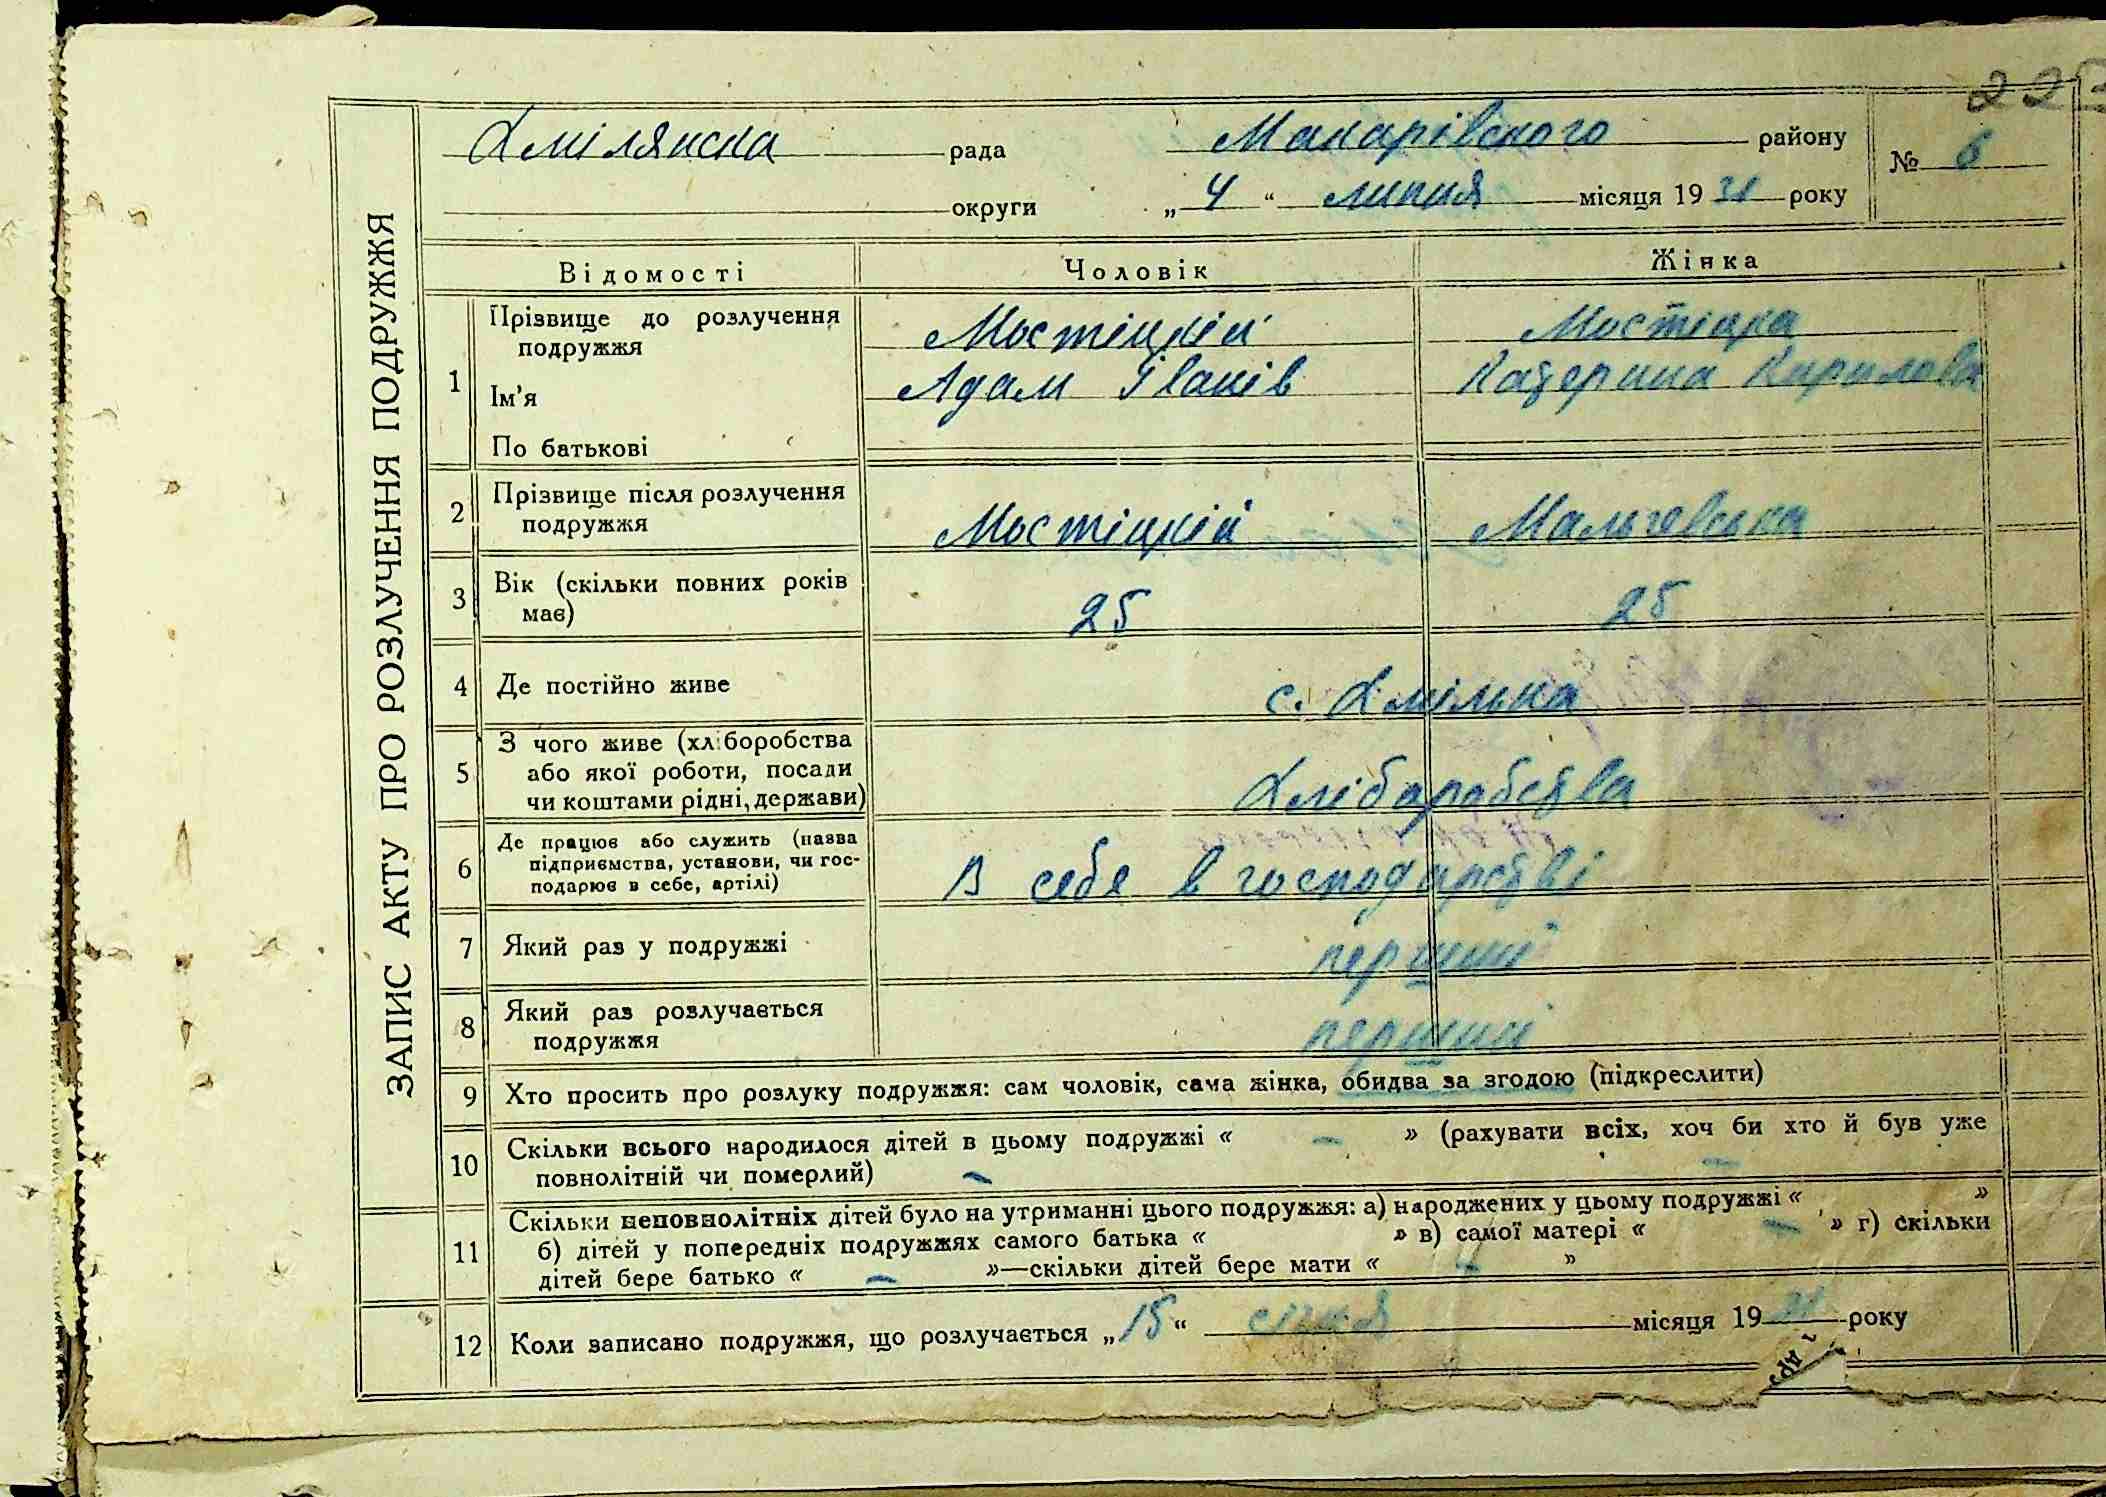 22
Хмілянска рада Макарівского району № 6
округи „4“ липня місяця 1931 року
ЗАПИС АКТУ ПРО РОЗЛУЧЕННЯ ПОДРУЖЖЯ
Відомості Чоловік Жінка
1 Прізвище до розлучення подружжя Мостіцкій Мостіцка
Ім'я Адам Іванів Катерина Кирилова
По батькові
2 Прізвище після розлучення
подружжя Мостіцкій Мальчевська
3 Вік (скільки повних років
має) 25 25
4 Де постійно живе с. Хмілька
5 З чого живе (хліборобства
або якої роботи, посади
чи коштами рідні, держави) Хлібаробства
6 Де працює або служить (назва
підприємства, установи, чи гос-
подарює в себе, артілі) В себе в господарстві
7 Який раз у подружжі перший
8 Який раз розлучається
подружжя перший
9 Хто просить про розлуку подружжя: сам чоловік, сама жінка, обидва за згодою (підкреслити)
10 Скільки всього народилося дітей в цьому подружжі « – » (рахувати всіх, хоч би хто й був уже
повнолітній чи померлий) –
11 Скільки неповнолітніх дітей було на утриманні цього подружжя: а) народжених у цьому подружжі « »
б) дітей у попередніх подружжях самого батька « » в) самої матері « – » г) скільки
дітей бере батько « – »—скільки дітей бере мати « – »
12 Коли записано подружжя, що розлучається „15“ січня місяця 1931 року